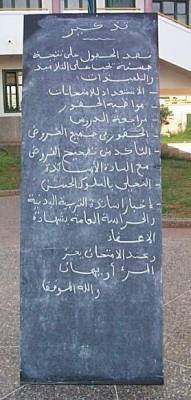 تذكير
بقصد الحصول على نتيجة
حسنة يجب على التلاميذ
والتلميذات
- الاستعداد للامتحانات
- مواظبة الحضور
- مراجعة الدروس
- الحضور في جميع الفروض
- التأكد من تصحيح الفروض
مع السادة الأساتذة
- التحلي بالسلوك الحسن
- إخبار أساتذة التربية البدنية
والحراسة العامة بشهادة
الإعفاء
وعند الامتحان يعز
المرء أو يهان
والله الموفق